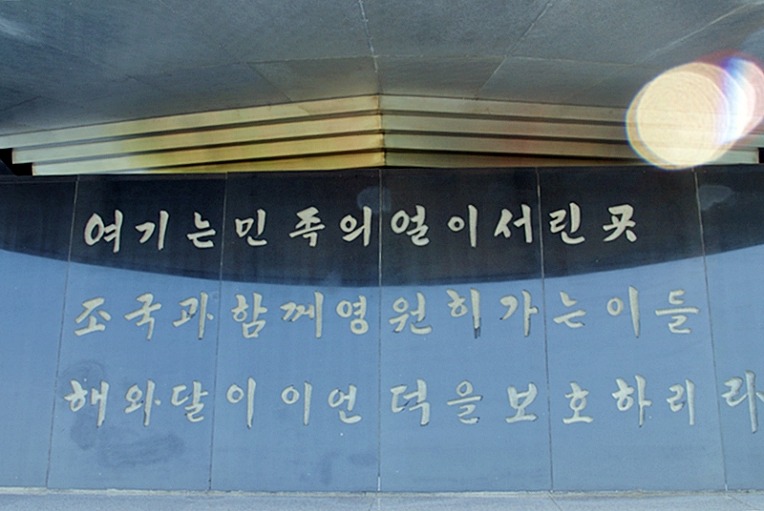 여기는 민족의 얼이 서린 곳
조국과 함께 영원히 가는 이들
해와 달이 이 언덕을 보호하리라